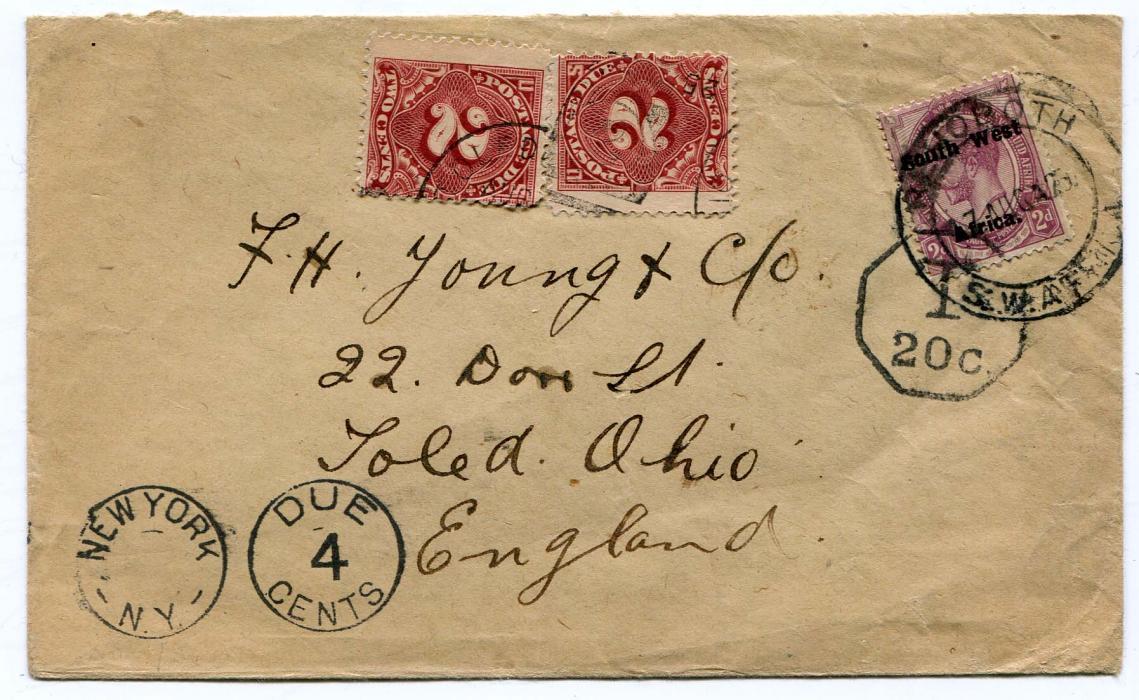 POSTAGE DUE
TWO CENTS
2
POSTAGE DUE
TWO CENTS
2
South West
Africa.
2d
2d
S.W.A.
T
20c.
F.H. Young & C/o.
22. Don St.
Toled. Ohio
England.
NEW YORK
N.Y.
DUE
4
CENTS